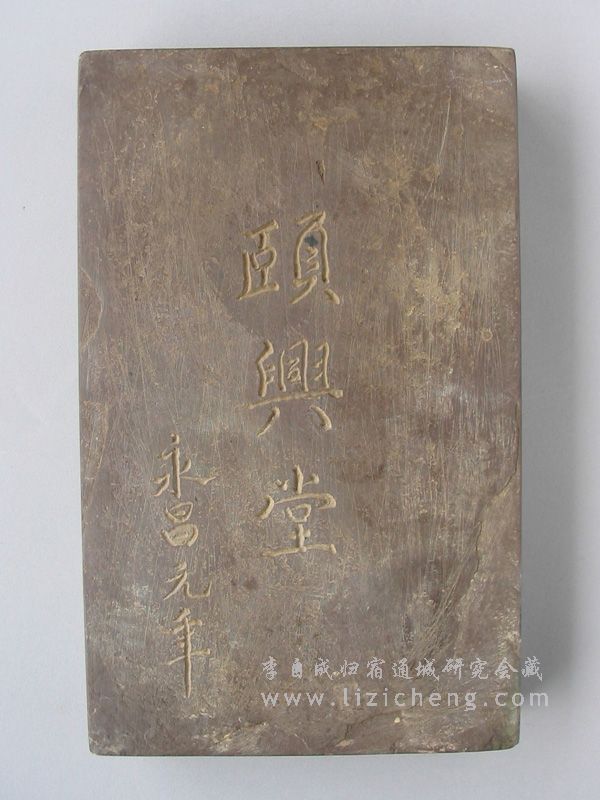 頤興堂
永昌元年
李自成归宿通城研究会藏
www.lizicheng.com